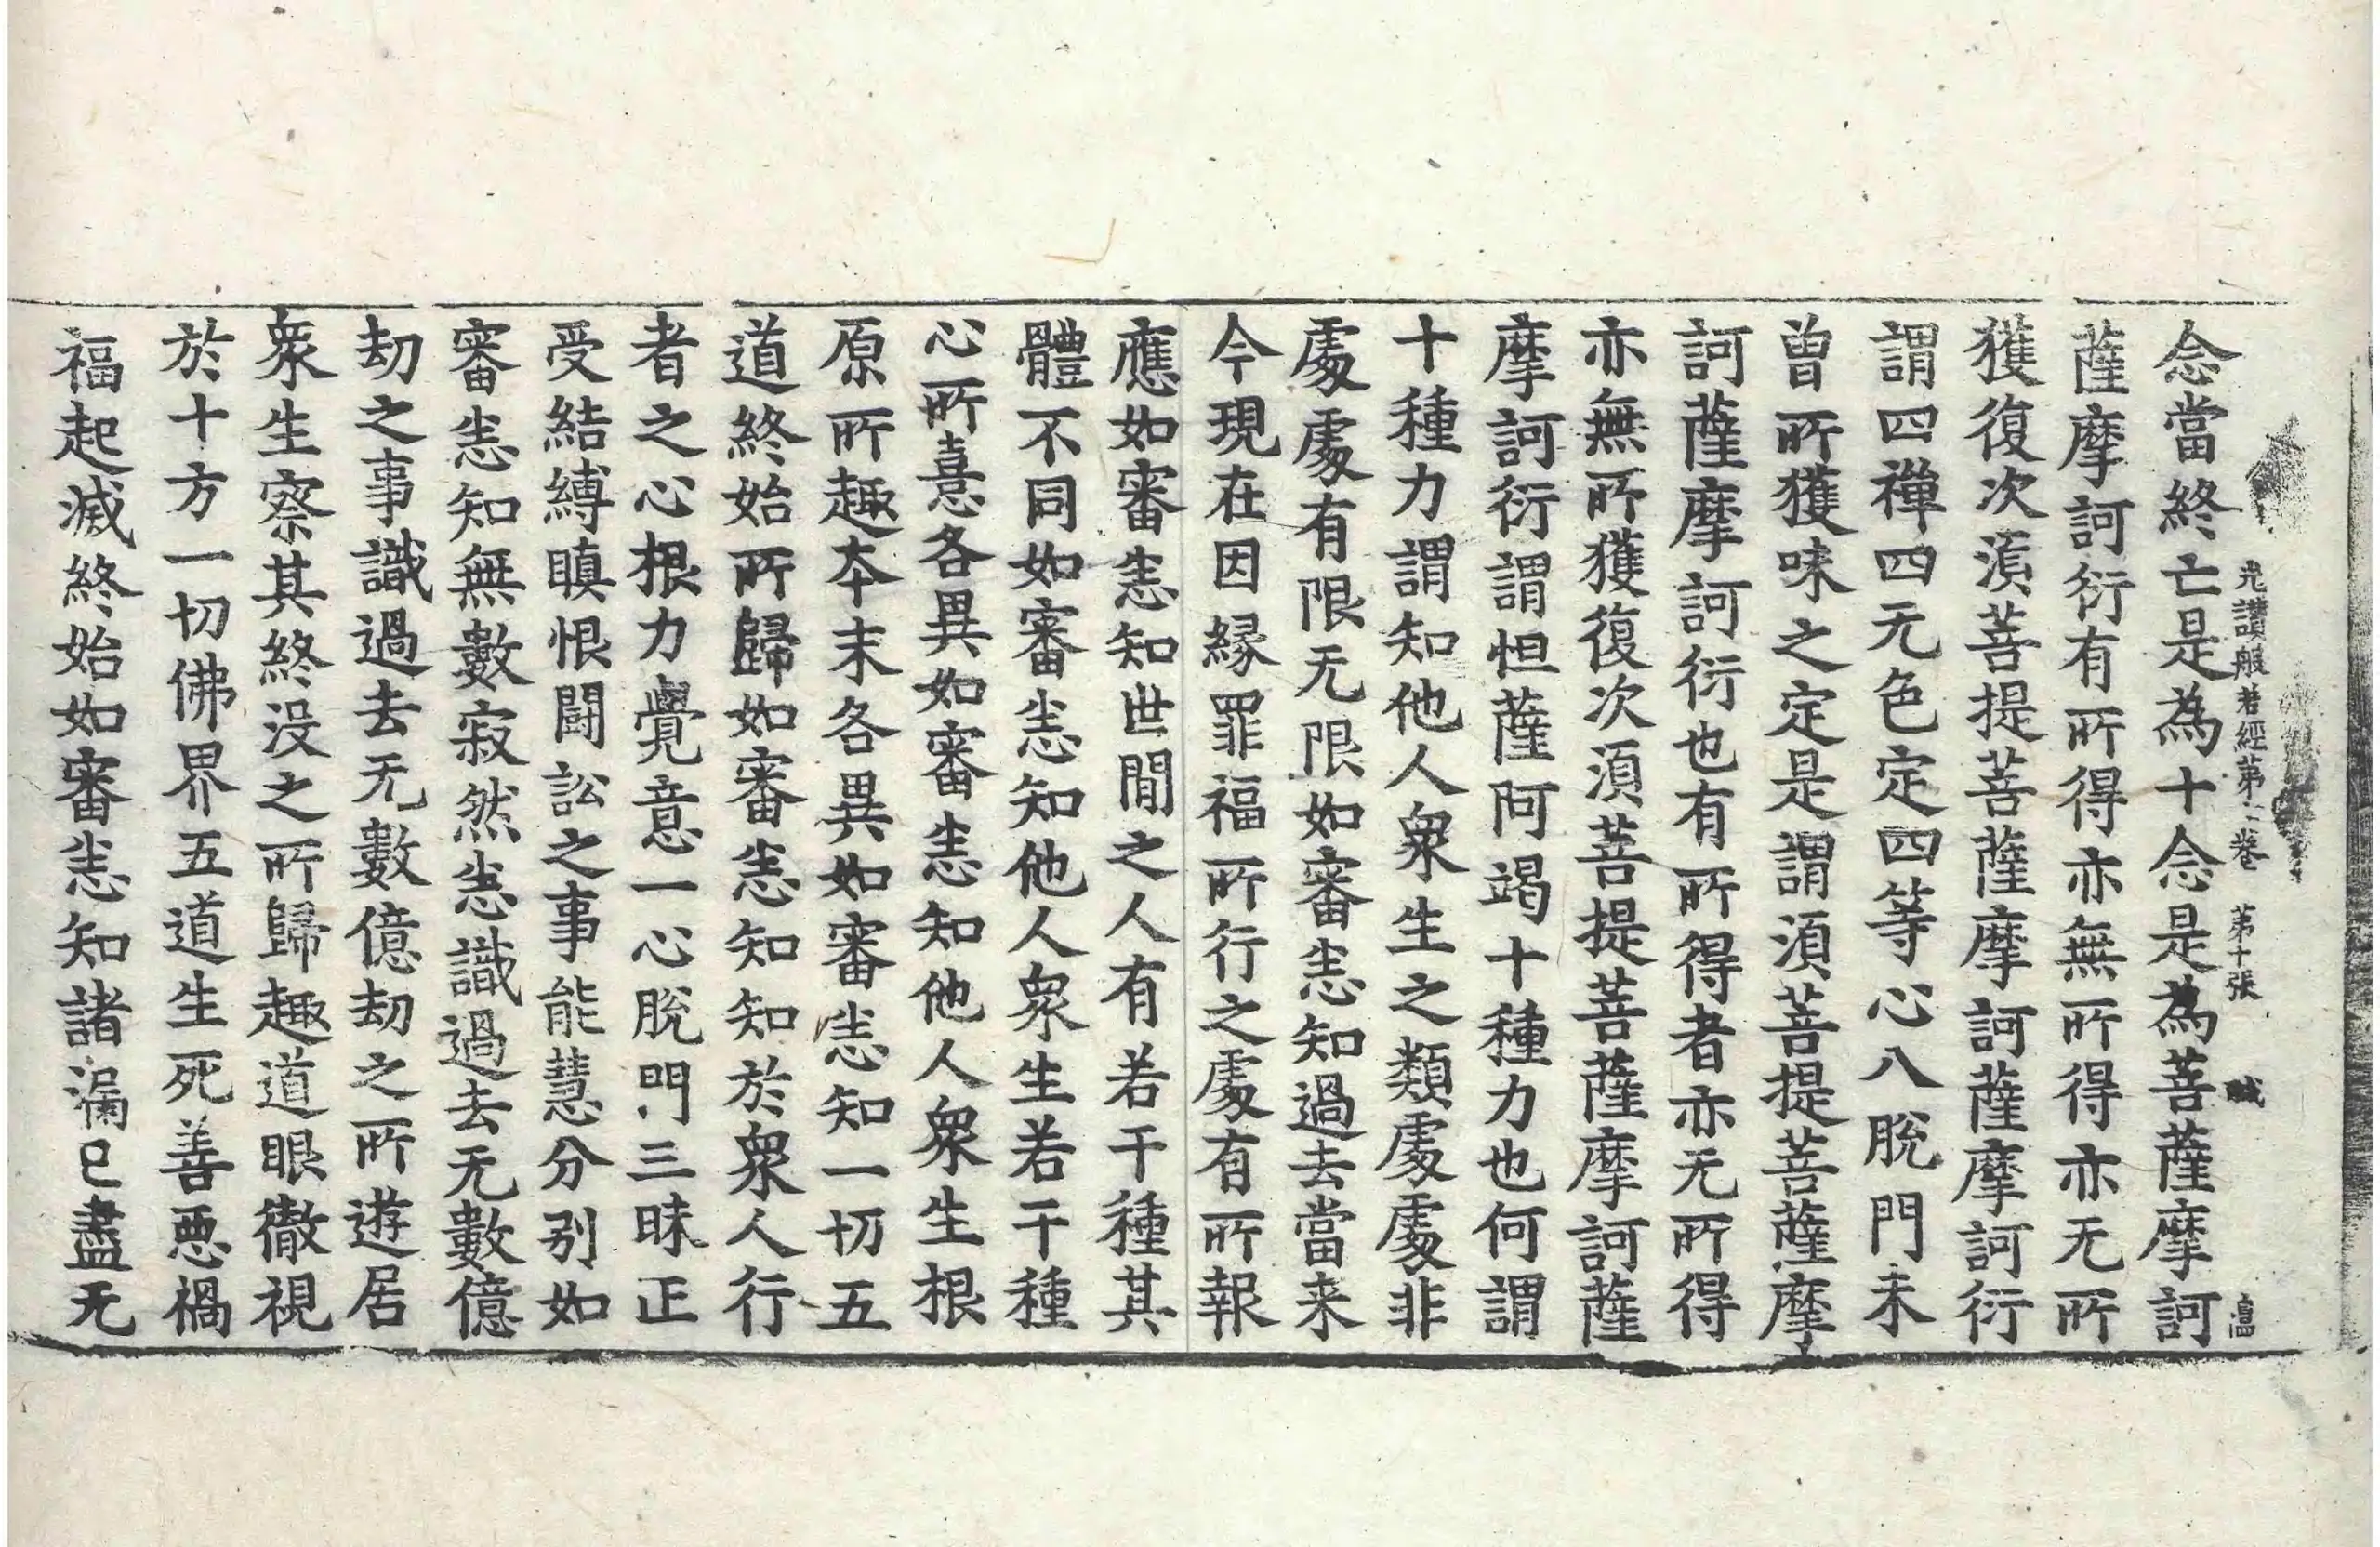 念當終亡是為十念是為菩薩摩訶
光讃般若經第卷 第十張
薩摩訶衍有所得亦無所得亦无所
獲復次湏菩提菩薩摩訶薩摩訶衍
謂四禪四无色定四等心八脫門未
曾所獲味之定是謂湏菩提菩薩摩
訶薩摩訶衍也有所得者亦无所得
亦無所獲復次湏菩提菩薩摩訶薩
摩訶衍謂怛薩阿竭十種力也何謂
十種力謂知他人衆生之類處處非
處處有限无限如審悉知過去當来
今現在因緣罪福所行之處有所報
應如審悉知世間之人有若干種其
體不同如審悉知他人衆生若干種
心所憙各異如審悉知他人衆生根
原所趣本末各異如審悉知一切五
道終始所歸如審悉知知於衆人行
者之心根力覺意一心脫門三昧正
受結縛瞋恨鬪訟之事能慧分别如
審悉知無數寂然悉識過去无數億
劫之事識過去无數億劫之所遊居
衆生察其終没之所歸趣道眼徹視
於十方一切佛界五道生死善惡禍
福起滅終始如審悉知諸漏已盡无